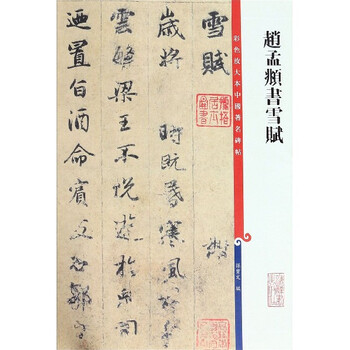 趙孟頫書雪賦
彩色放大本中國著名碑帖
孫寶文 編
雪賦
歲將 時既昏寒風
雲繁梁王不悅遊於兔園
迺置旨酒命賓友召鄒